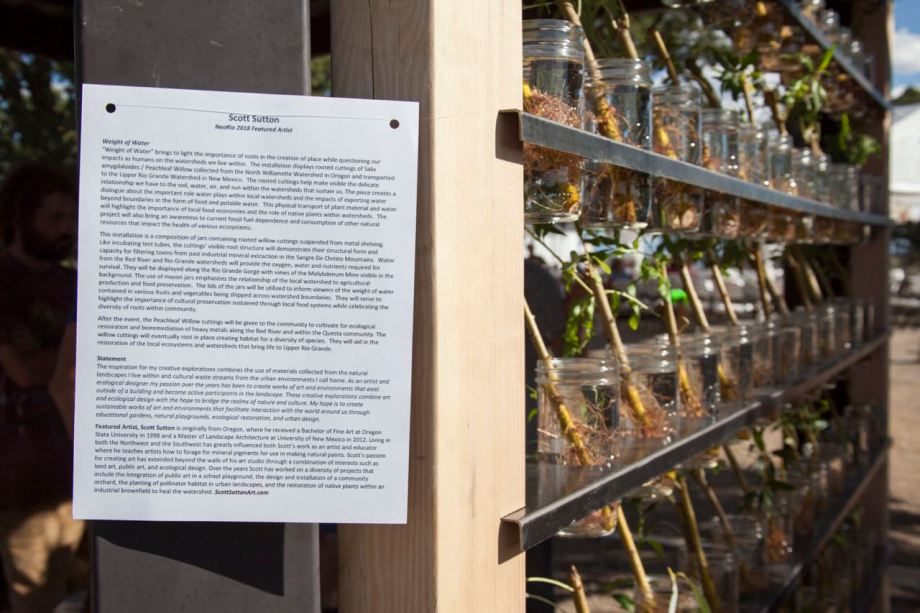 Scott Sutton
NeoRio 2018 Featured Artist
Weight of Water
"Weight of Water" brings to light the importance of roots in the creation of place while questioning our
impacts as humans on the watersheds we live within. The installation displays rooted cuttings of Salix
amygdaloides / Peachleaf Willow collected from the North Willamette Watershed in Oregon and transported
to the Upper Rio Grande Watershed in New Mexico. The rooted cuttings help make visible the delicate
relationship we have to the soil, water, air, and sun within the watersheds that sustain us. The piece creates a
dialogue about the important role water plays within local watersheds and the impacts of exporting water
beyond boundaries in the form of food and potable water. This physical transport of plant material and water
will highlight the importance of local food economies and the role of native plants within watersheds. The
project will also bring an awareness to current fossil fuel dependence and consumption of other natural
resources that impact the health of various ecosystems.
This installation is a composition of jars containing rooted willow cuttings suspended from metal shelving.
Like incubating test tubes, the cuttings' visible root structure will demonstrate their structural form and
capacity for filtering toxins from past industrial mineral extraction in the Sangre De Christo Mountains. Water
from the Red River and Rio Grande watersheds will provide the oxygen, water and nutrients required for
survival. They will be displayed along the Rio Grande Gorge with views of the Molybdenum Mine visible in the
background. The use of mason jars emphasizes the relationship of the local watershed to agricultural
production and food preservation. The lids of the jars will be utilized to inform viewers of the weight of water
contained in various fruits and vegetables being shipped across watershed boundaries. They will serve to
highlight the importance of cultural preservation sustained through local food systems while celebrating the
diversity of roots within community.
After the event, the Peachleaf Willow cuttings will be given to the community to cultivate for ecological
restoration and bioremediation of heavy metals along the Red River and within the Questa community. The
willow cuttings will eventually root in place creating habitat for a diversity of species. They will aid in the
restoration of the local ecosystems and watersheds that bring life to Upper Rio Grande.
Statement
The inspiration for my creative explorations combines the use of materials collected from the natural
landscapes I live within and cultural waste streams from the urban environments I call home. As an artist and
ecological designer my passion over the years has been to create works of art and environments that exist
outside of a building and become active participants in the landscape. These creative explorations combine art
and ecological design with the hope to bridge the realms of nature and culture. My hope is to create
sustainable works of art and environments that facilitate interaction with the world around us through
educational gardens, natural playgrounds, ecological restoration, and urban design.
Featured Artist, Scott Sutton is originally from Oregon, where he received a Bachelor of Fine Art at Oregon
State University in 1998 and a Master of Landscape Architecture at University of New Mexico in 2012. Living in
both the Northwest and the Southwest has greatly influenced both Scott's work as an artist and educator
where he teaches artists how to forage for mineral pigments for use in making natural paints. Scott's passion
for creating art has extended beyond the walls of his art studio through a combination of interests such as
land art, public art, and ecological design. Over the years Scott has worked on a diversity of projects that
include the integration of public art in a school playground, the design and installation of a community
orchard, the planting of pollinator habitat in urban landscapes, and the restoration of native plants within an
industrial brownfield to heal the watershed. ScottSuttonArt.com